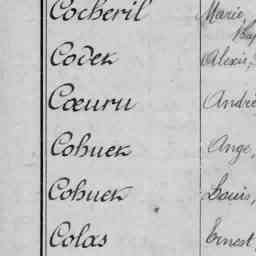 Cocheril Marie,
Codek Alexis,
Cœuru André
Cohuek Ange,
Cohuek Louis,
Colas Ernest